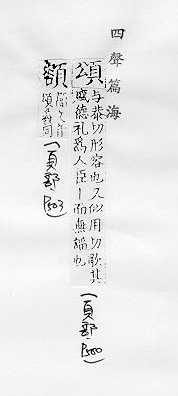 四聲篇海
頌
与恭切形容也又似用切歌其
盛德礼爲人臣丨而無謟也
(頁部 P500)
𩔜
籀文音
頌義同
(頁部 P503)